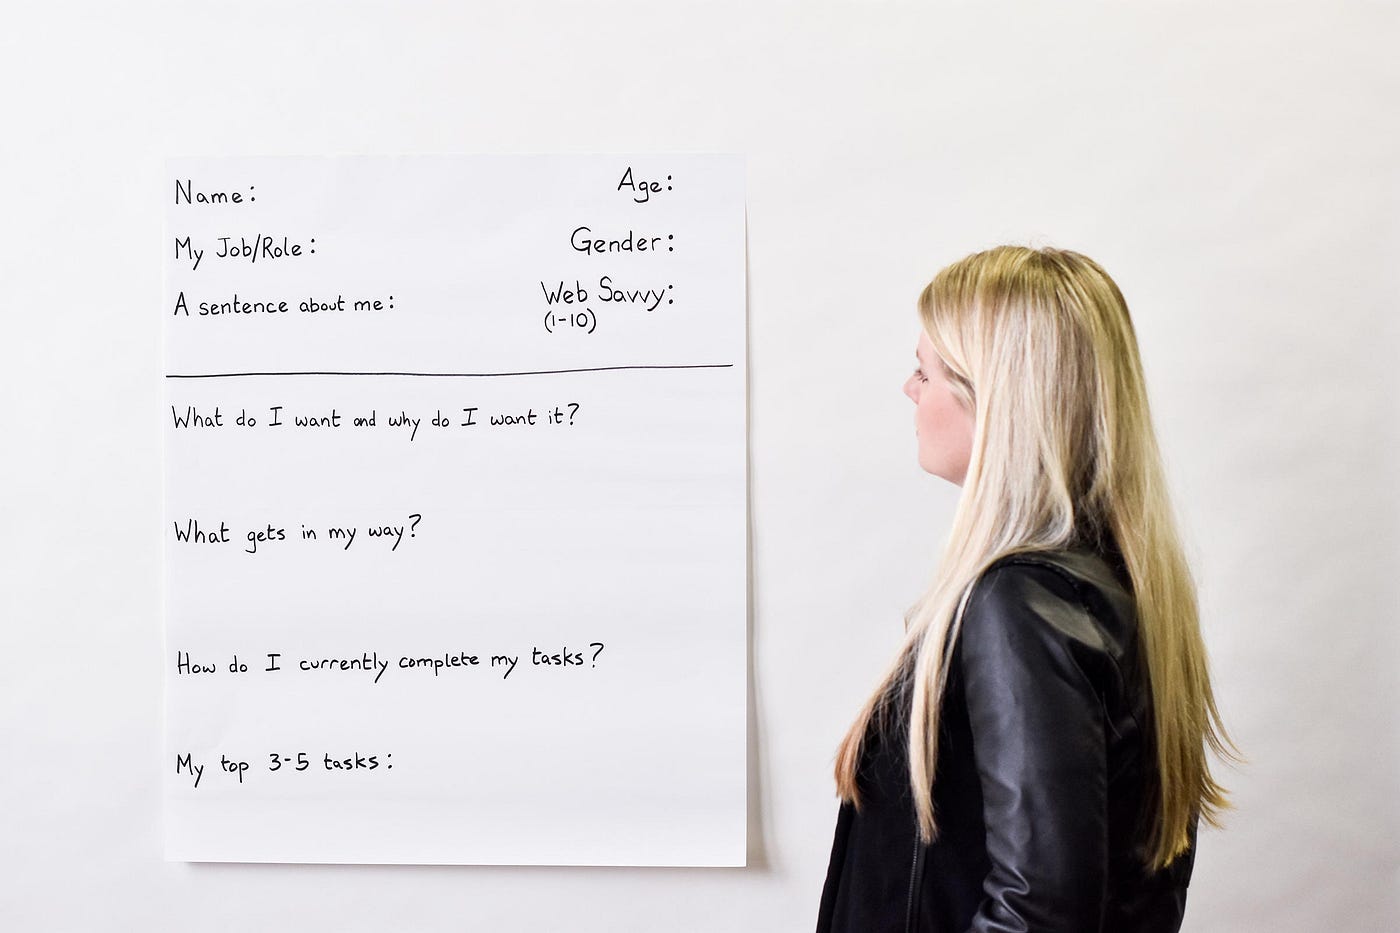 Name:
Age:
My Job/Role:
Gender:
A sentence about me:
Web Savvy:
(1-10)
What do I want and why do I want it?
What gets in my way?
How do I currently complete my tasks?
My top 3-5 tasks: